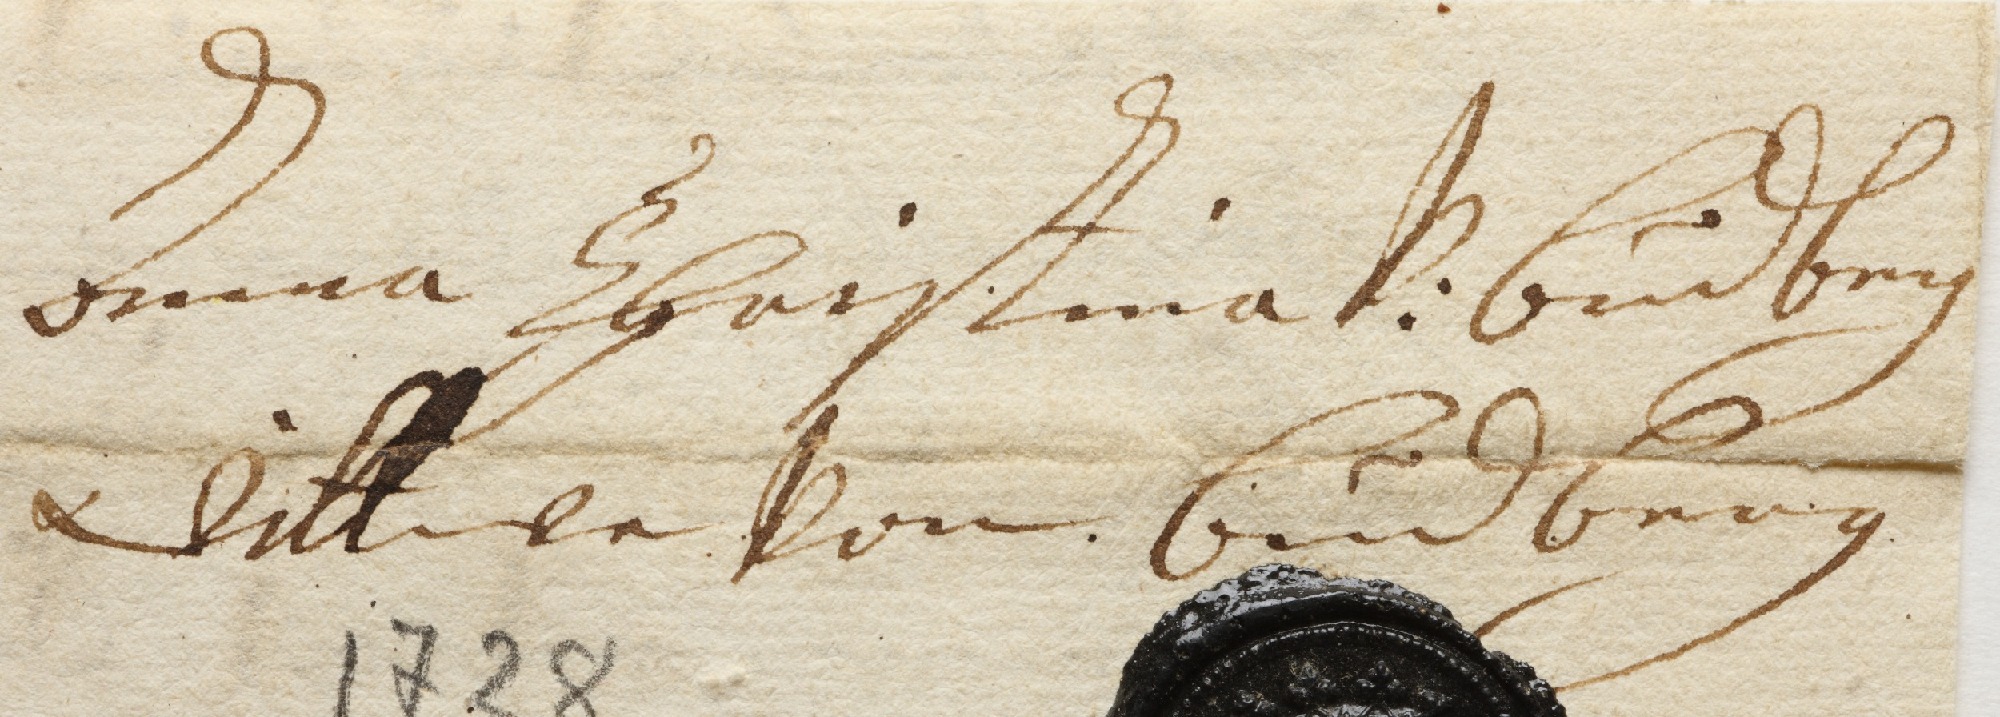 Anna Christina V: Budberg
Wittwe Von Budberg
1728